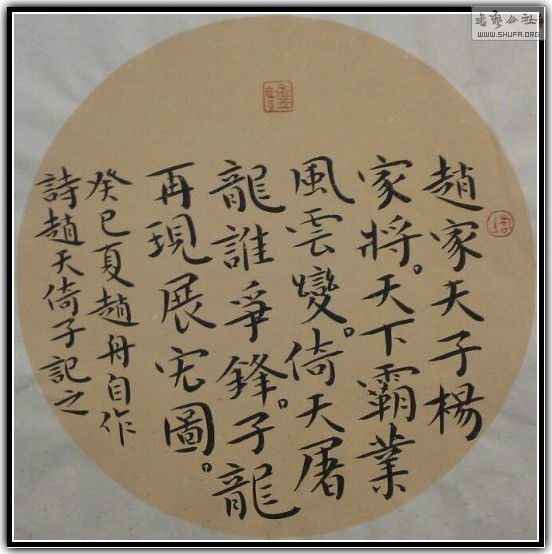 趙家天子楊
家將。天下霸業
風雲變。倚天屠
龍誰爭鋒。子龍
再現展宏圖。
癸巳夏趙舟自作
詩趙天倚子記之
書藝公社
WWW.SHUFA.ORG